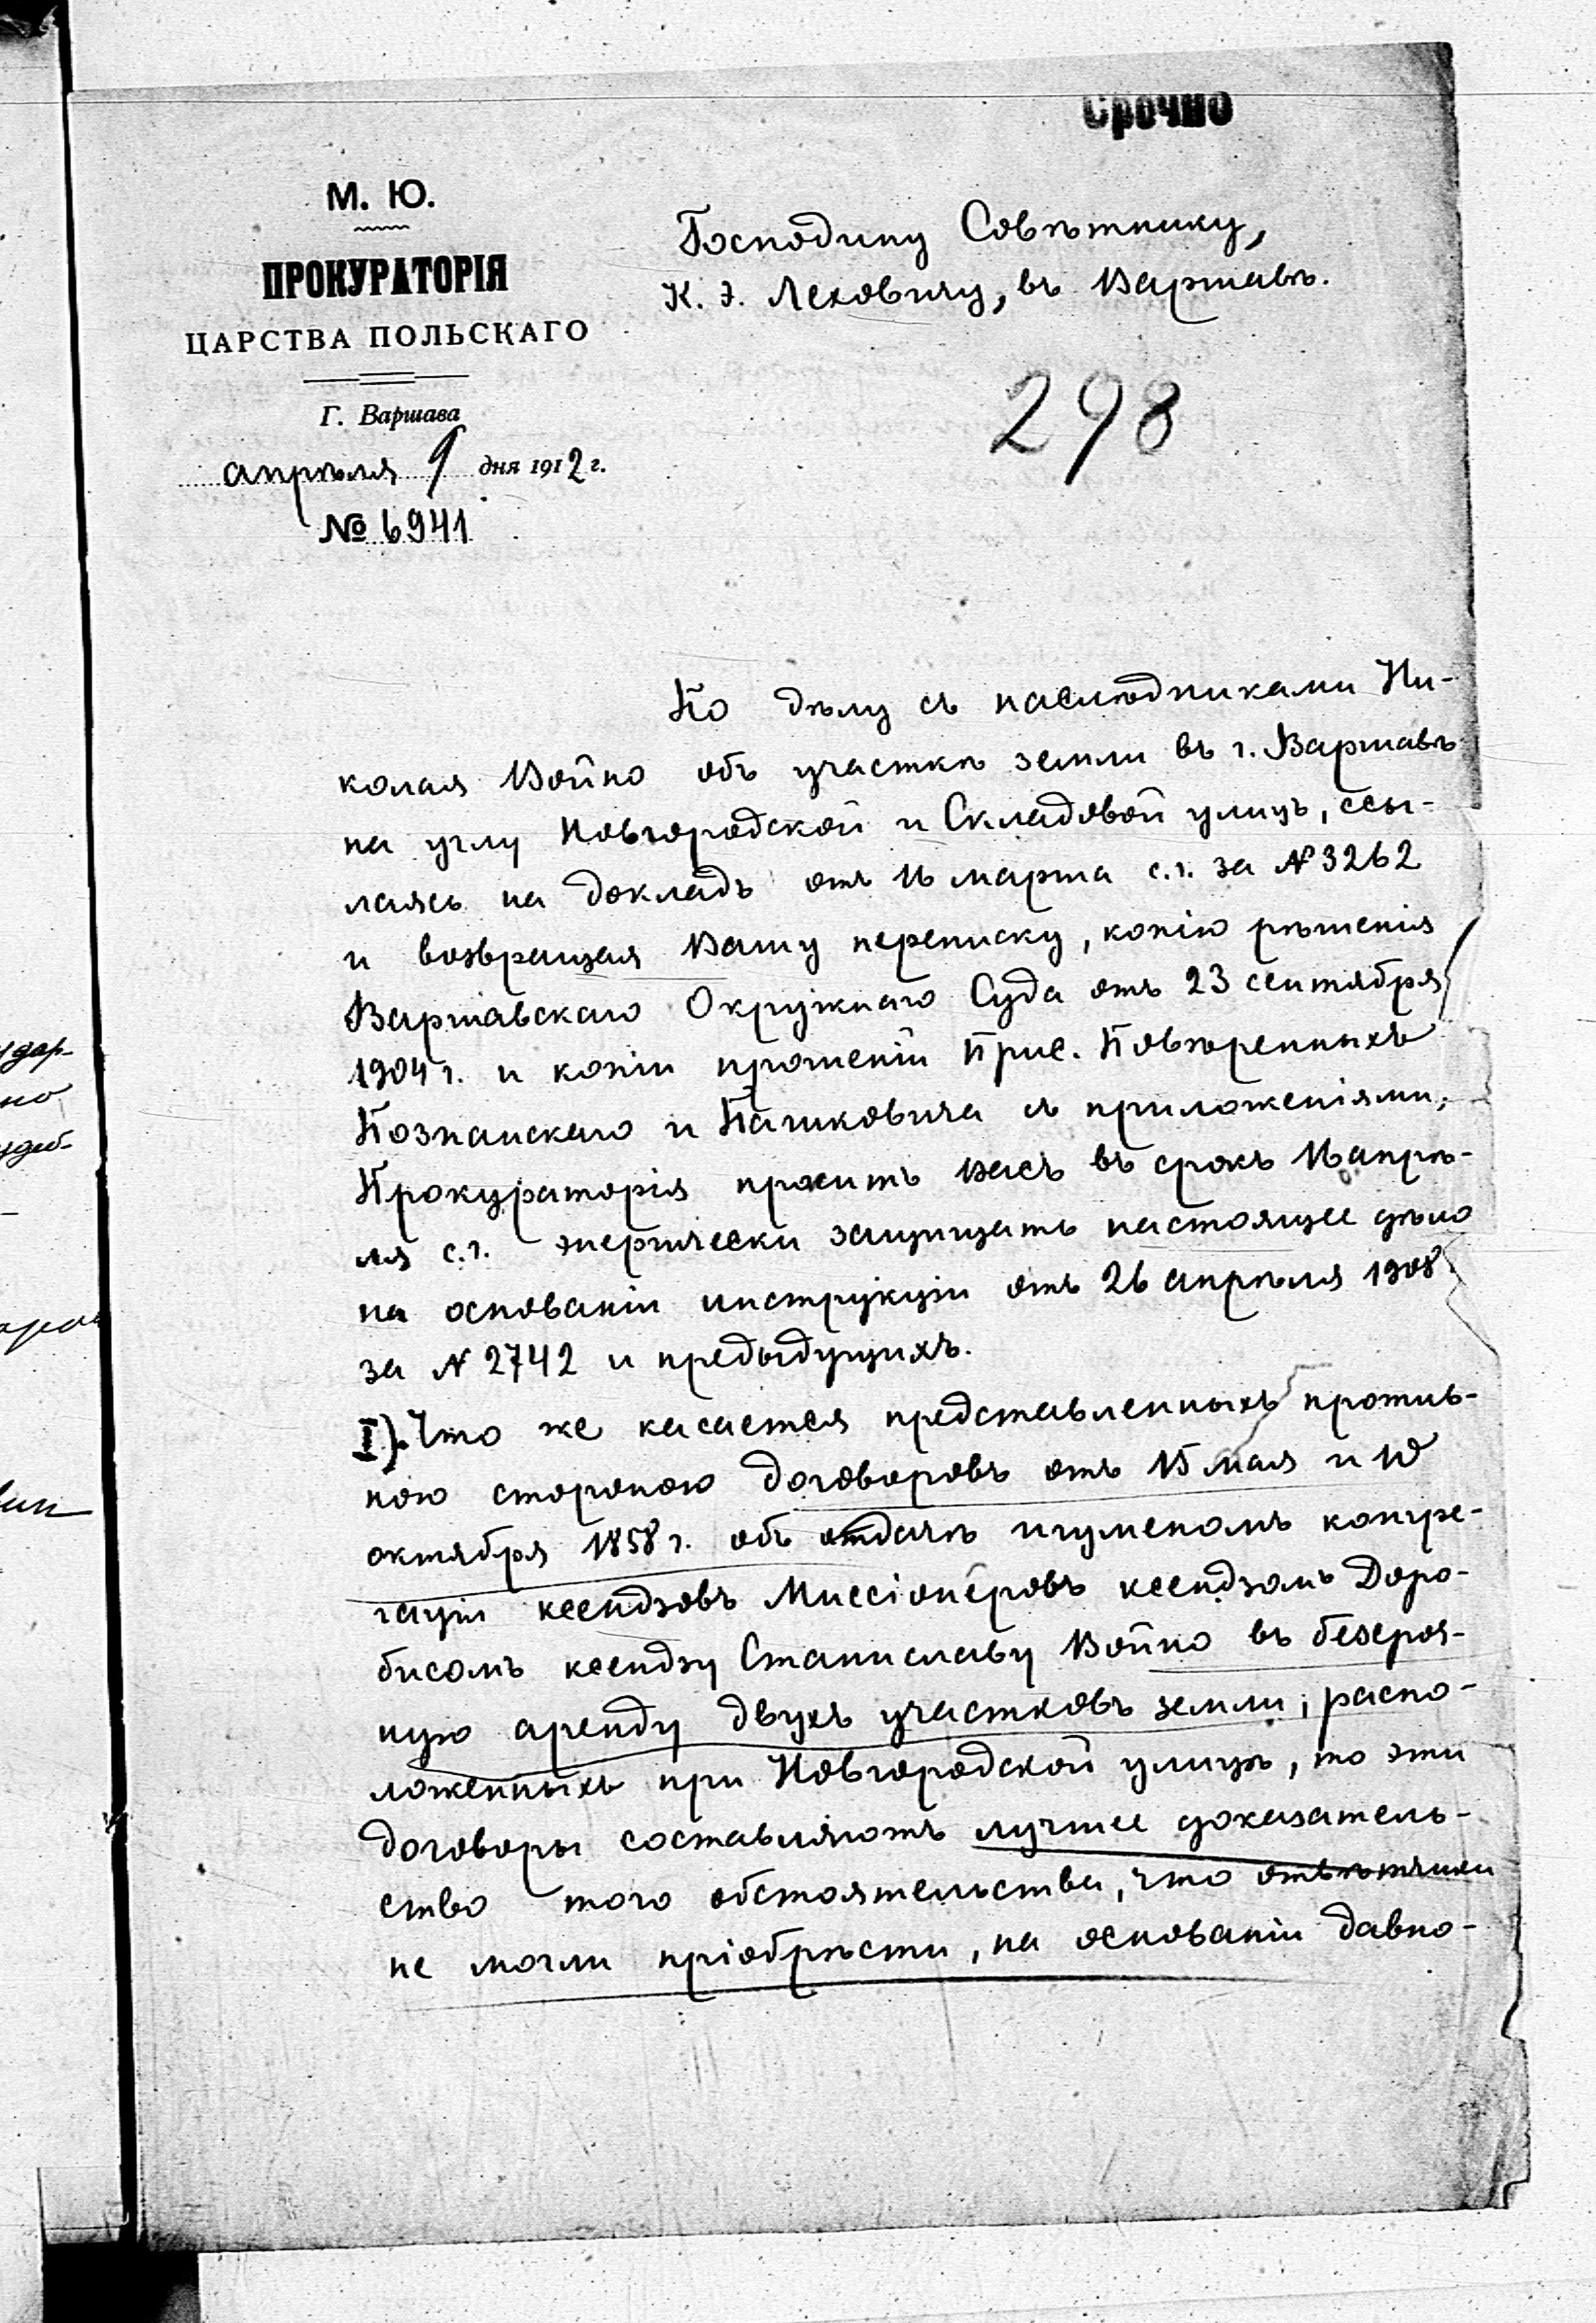 Срочно
М. Ю.
ПРОКУРАТОРІЯ
ЦАРСТВА ПОЛЬСКАГО
Г. Варшава
апрѣля 9 дня 1912 г.
№ 6941
Господину Совѣтнику,
К. Э. Леховичу, въ Варшавѣ.
298
По дѣлу съ наслѣдниками Ни-
колая Войно объ участкѣ земли въ г. Варшавѣ
на углу Новгородской и Складовой улицъ, ссы-
лаясь на докладъ отъ 16 марта с.г. за № 3262
и возвращая Вашу переписку, копію рѣшенія
Варшавскаго Окружнаго Суда отъ 23 сентября
1904 г. и копіи прошеній Прис. Повѣренныхъ
Познанскаго и съ приложеніями,
Прокураторія проситъ Васъ въ срокъ 16 апрѣ-
ля с.г. энергически защищать настоящее дѣло
на основаніи инструкціи отъ 26 апрѣля 1908
за № 2742 и предыдущихъ.
I). Что же касается представленныхъ против-
ною стороною договоровъ отъ 15 мая и 10
октября 1858 г. объ отдачѣ игуменомъ конгре-
гаціи ксендзовъ Миссіонеровъ ксендзомъ Доро-
бисомъ ксендзу Станиславу Войно въ безсроч-
ную аренду двухъ участковъ земли, распо-
ложенныхъ при Новгородской улицѣ, то эти
договоры составляютъ лучшее доказатель-
ство того обстоятельства, что отвѣтчики
не могли пріобрѣсти, на основаніи давно-